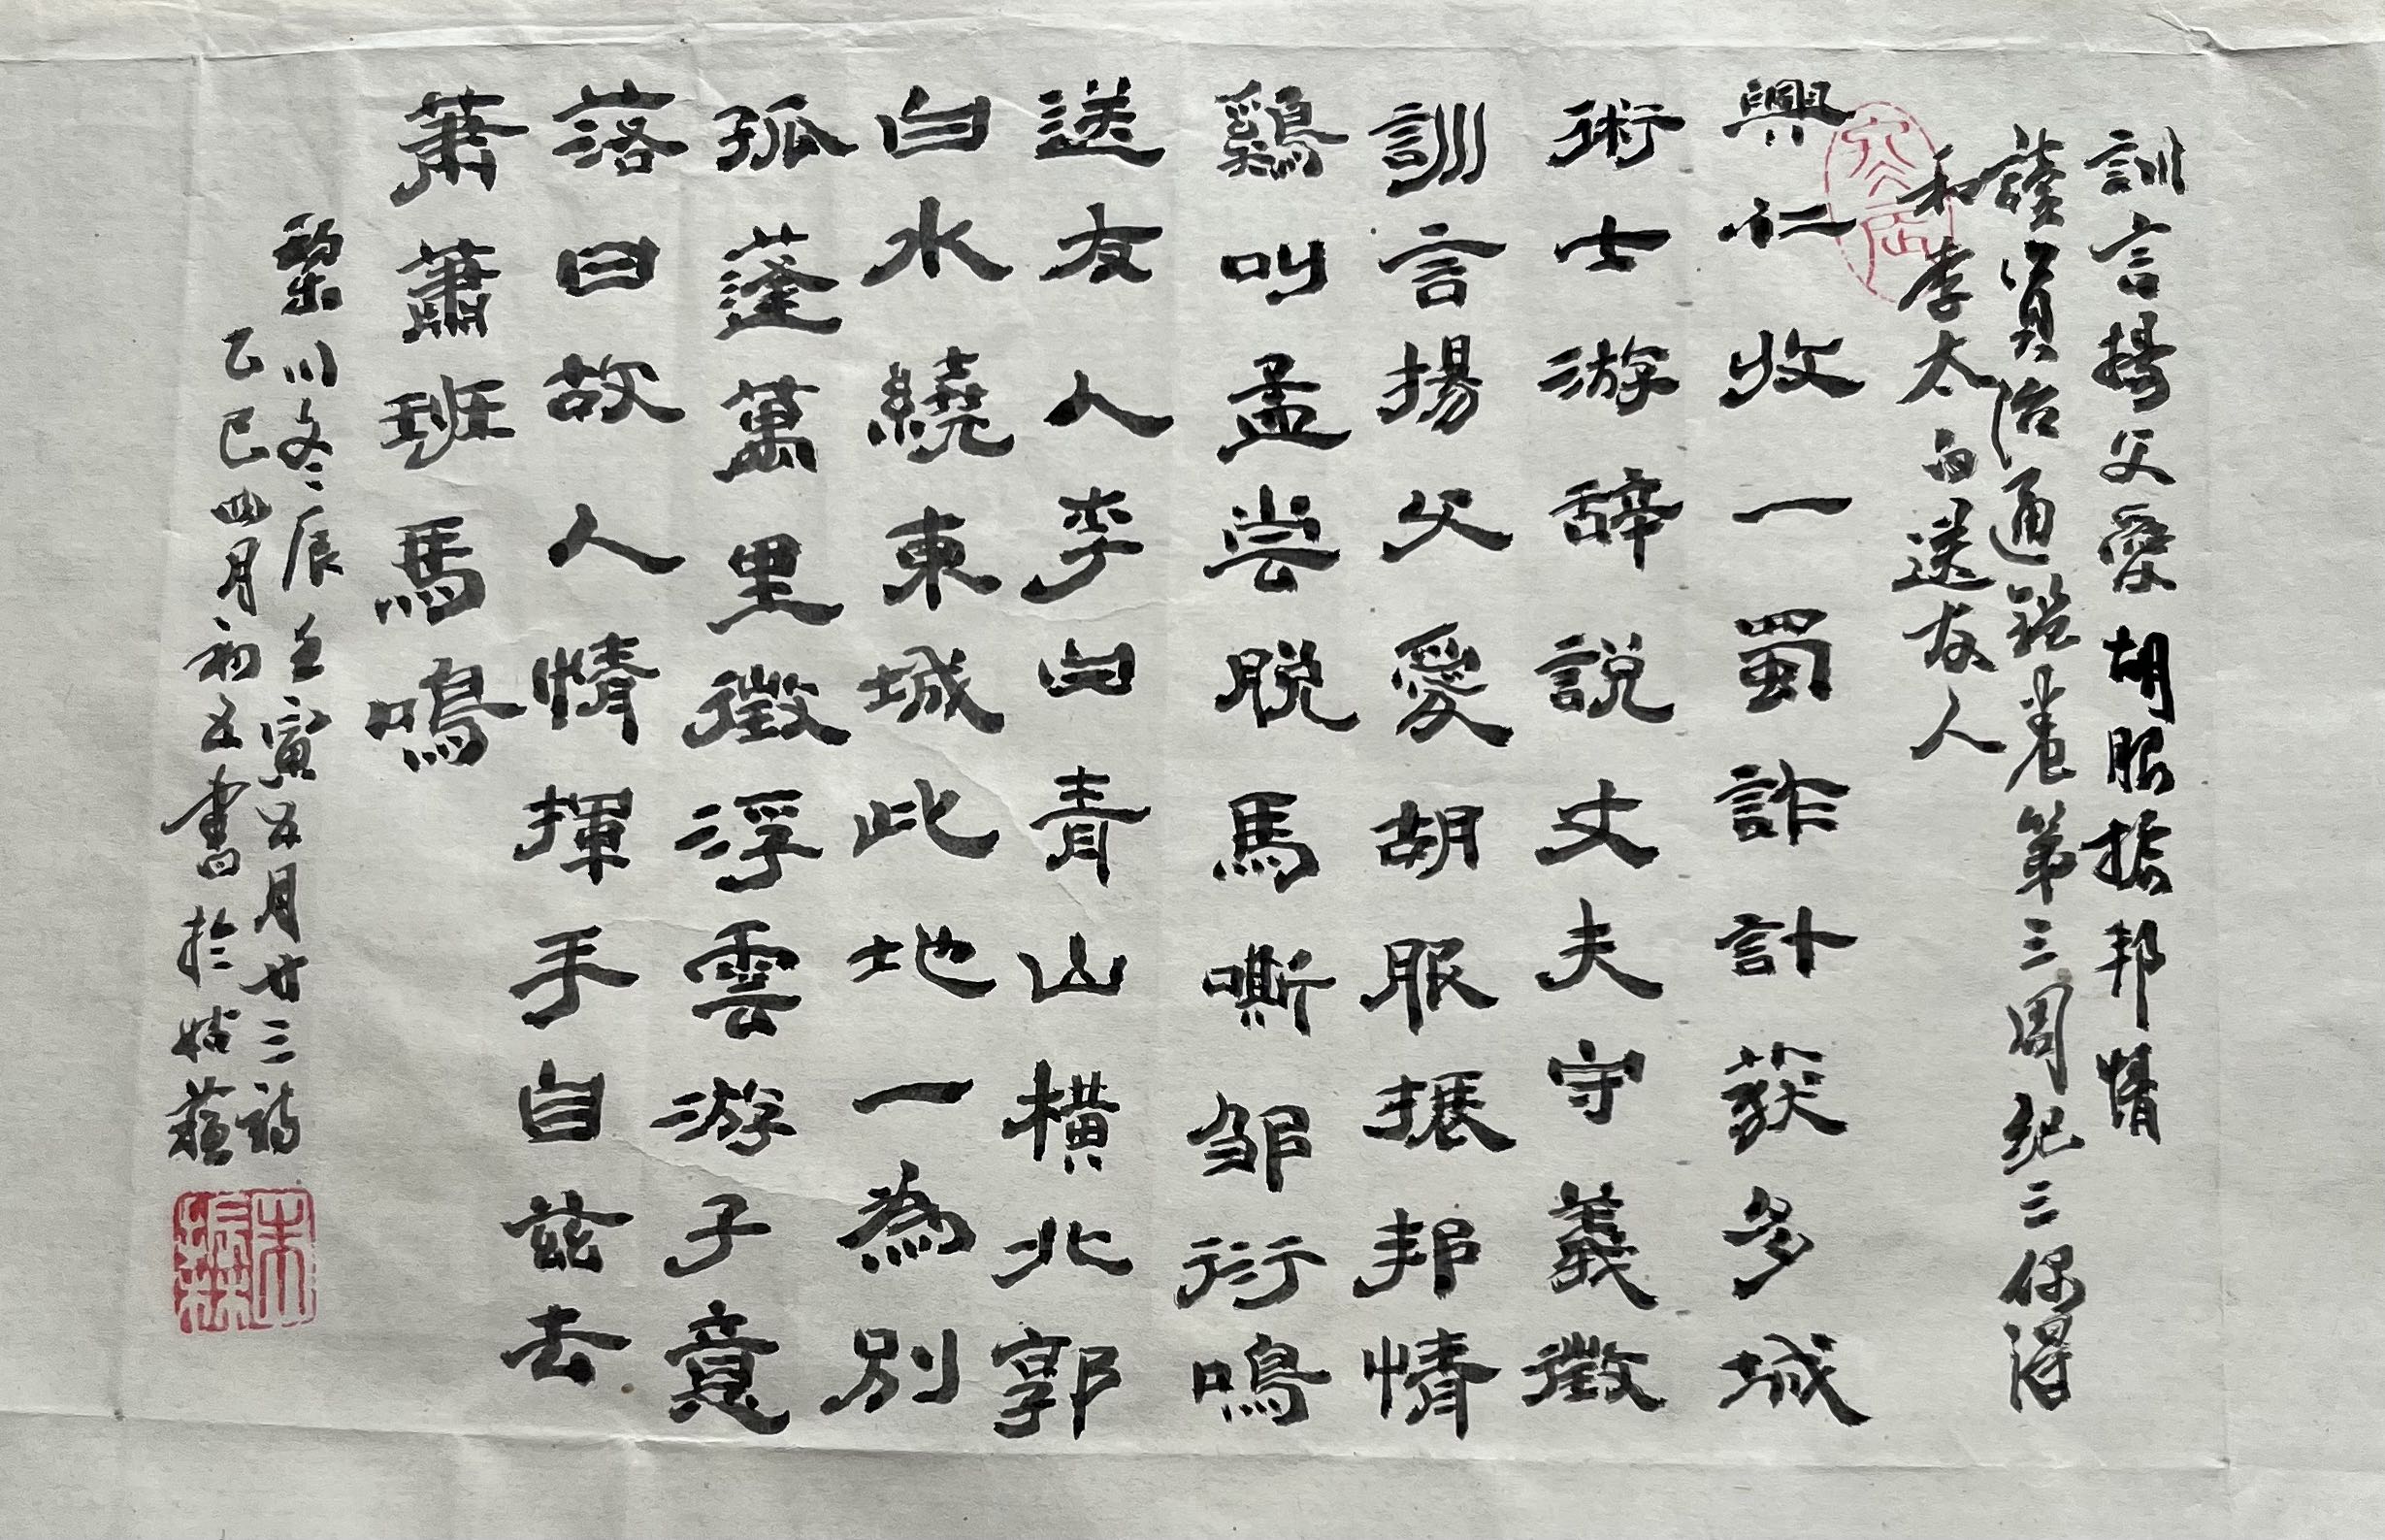 訓言揚父愛胡服振邦情
讀資治通鑑卷第三周紀三偶得
和李太白送友人
興仁收一蜀詐計获多城
術士游辞説丈夫守義徵
訓言揚父愛胡服振邦情
鷄叫孟尝脱馬嘶邹衍鳴
送友人李白青山橫北郭
白水繞東城此地一為別
孤蓬萬里徵浮雲游子意
落日故人情揮手自茲去
蕭蕭班馬鳴
黎川冬辰壬寅五月廿三詩
乙巳四月初五書於姑蘇